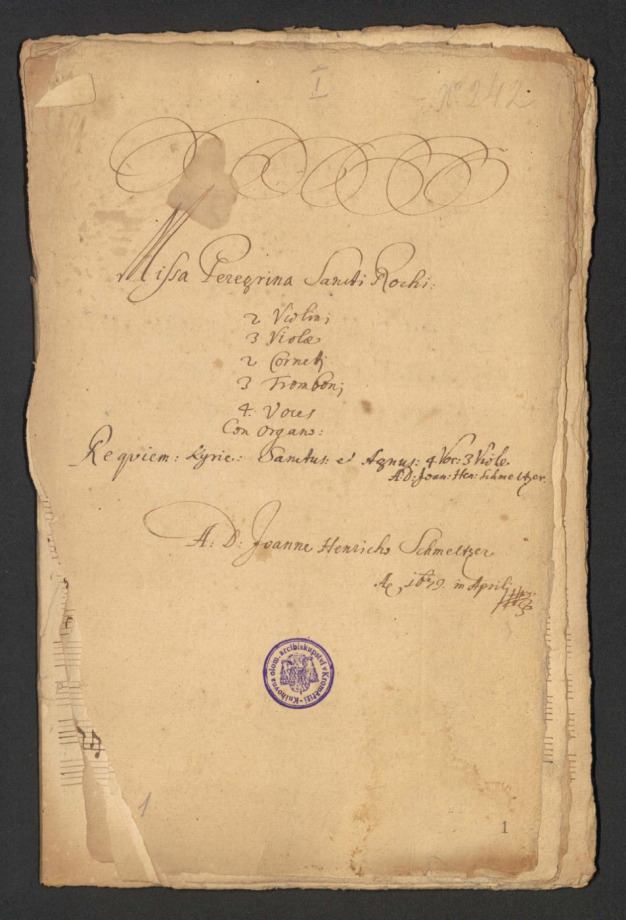 I
No 242
Missa Peregrina Sancti Rochi:
2 Violini
3 Violæ
2 Cornetj
3 Trombonj
4. Voces
Con organo:
Requiem: Kyrie: Sanctus: et Agnus: 4 Voc: 3 Viole
A D: Joan: Hen: Schmeltzer
A: D: Joanne Henricho Schmeltzer
Aº 1679. in Aprilj
Knihovna olom. arcibiskupství v Kroměříži
1
1